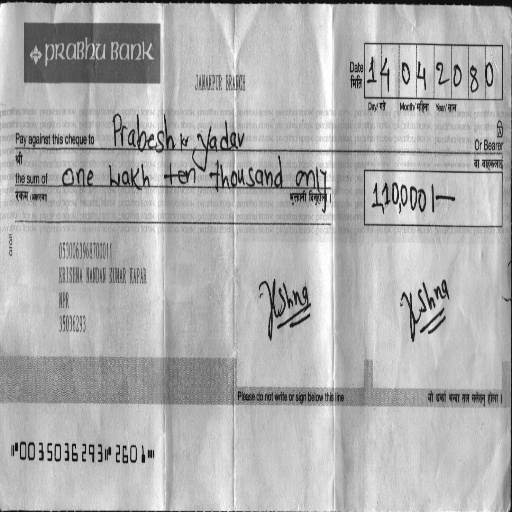 PRABHU BANK
JANAKPUR BRANCH
Date 14 04 2080
मिति
Day/ गते Month/ महिना Year/ साल
Pay against this cheque to Prabesh kr Yadav Or Bearer
श्री वा वाहकलाई
the sum of one lakh ten thousand only
रकम (अक्षरमा
1,10,000/-
KRISHNA NANDAN KUMAR KAPAR
NPR
35036293
Kshna Kshna
Please do not write or sign below this line
0035036293 2601